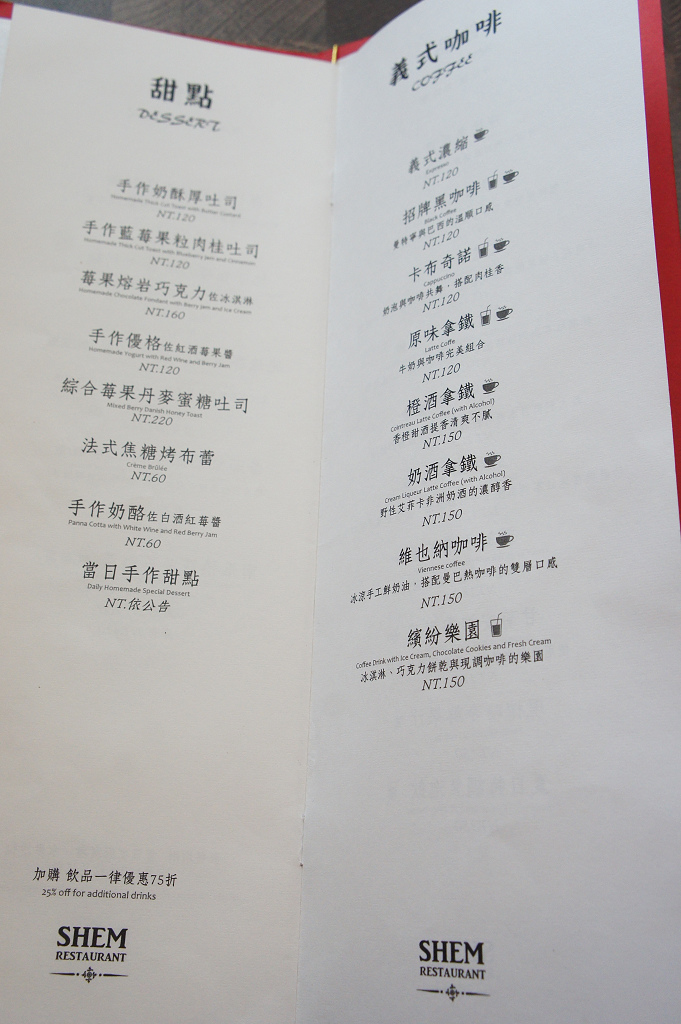 甜點
DESSERT
手作奶酥厚吐司
Homemade Thick Cut Toast with Butter Custard
NT.120
手作藍莓果粒肉桂吐司
Homemade Thick Cut Toast with Blueberry Jam and Cinnamon
NT.120
莓果熔岩巧克力佐冰淇淋
Homemade Chocolate Fondant with Berry Jam and Ice Cream
NT.160
手作優格佐紅酒莓果醬
Homemade Yogurt with Red Wine and Berry Jam
NT.120
綜合莓果丹麥蜜糖吐司
Mixed Berry Danish Honey Toast
NT.220
法式焦糖烤布蕾
Crème Brûlée
NT.60
手作奶酪佐白酒紅莓醬
Panna Cotta with White Wine and Red Berry Jam
NT.60
當日手作甜點
Daily Homemade Special Dessert
NT.依公告
加購 飲品一律優惠75折
25% off for additional drinks
SHEM
RESTAURANT
義式咖啡
COFFEE
義式濃縮
Espresso
NT.120
招牌黑咖啡
Black Coffee
曼特寧與巴西的溫順口感
NT.120
卡布奇諾
Cappuccino
奶泡與咖啡共舞，搭配肉桂香
NT.120
原味拿鐵
Latte Coffe
牛奶與咖啡完美組合
NT.120
橙酒拿鐵
Cointreau Latte Coffee (with Alcohol)
香橙甜酒提香清爽不膩
NT.150
奶酒拿鐵
Cream Liqueur Latte Coffee (with Alcohol)
野性艾菲卡非洲奶酒的濃醇香
NT.150
維也納咖啡
Viennese coffee
冰涼手工鮮奶油，搭配曼巴熱咖啡的雙層口感
NT.150
繽紛樂園
Coffee Drink with Ice Cream, Chocolate Cookies and Fresh Cream
冰淇淋、巧克力餅乾與現調咖啡的樂園
NT.150
SHEM
RESTAURANT